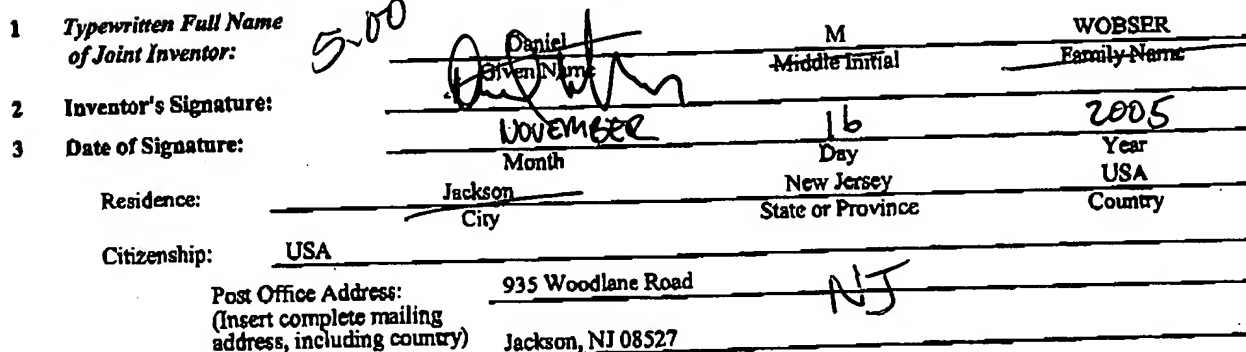 1 Typewritten Full Name
of Joint Inventor: 5-00 Daniel M WOBSER
Given Name Middle Initial Family Name
2 Inventor's Signature:
3 Date of Signature: NOVEMBER 16 2005
Month Day Year
Residence: Jackson New Jersey USA
City State or Province Country
Citizenship: USA
Post Office Address: 935 Woodlane Road NJ
(Insert complete mailing
address, including country) Jackson, NJ 08527